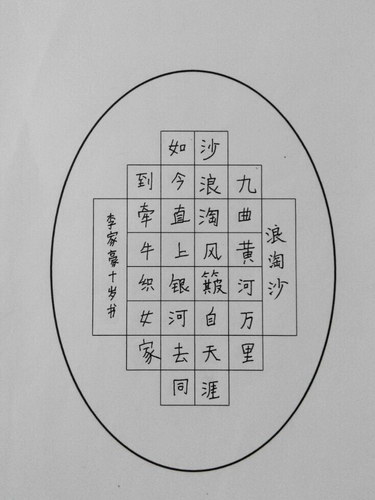 浪淘沙
九曲黄河万里
沙浪淘风簸自天涯
如今直上银河去同
到牵牛织女家
李家豪十岁书